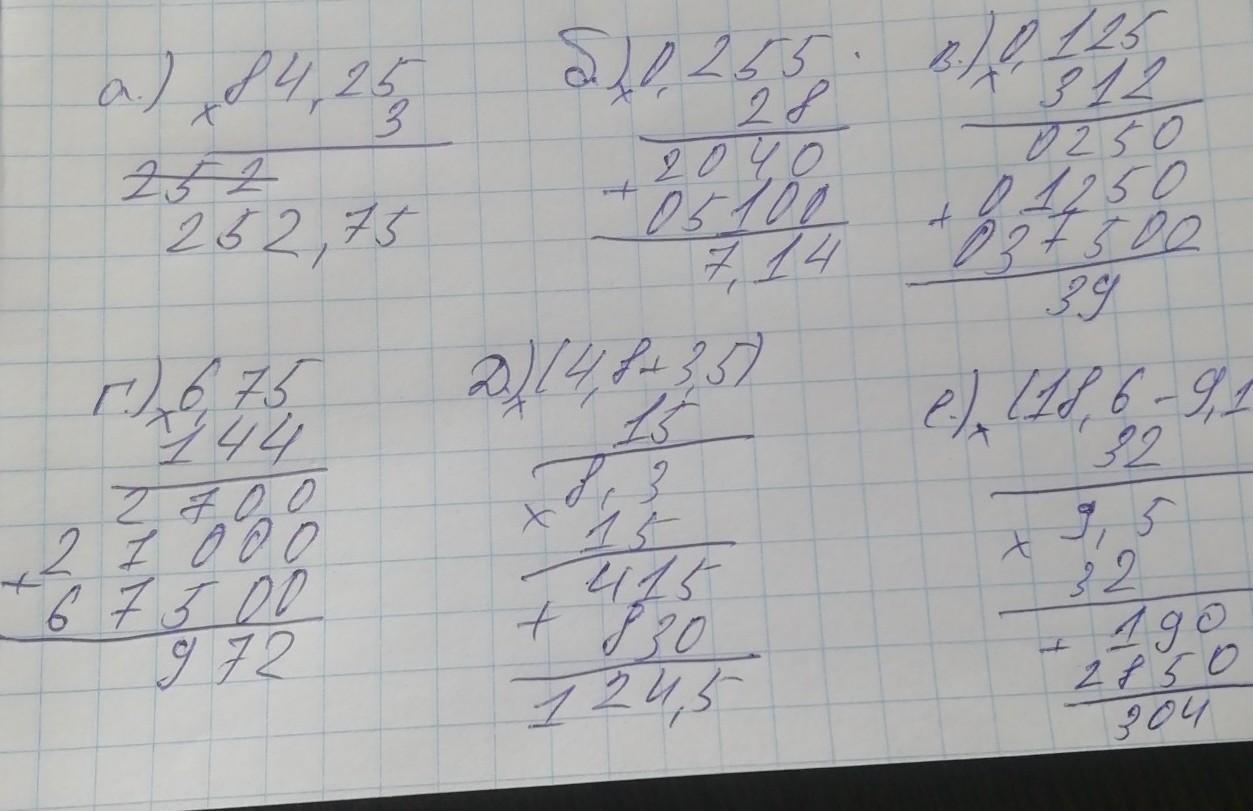 а.) × 84,25
3
252
252,75
б.) × 0,255
28
2040
+ 05100
7,14
в.) × 0,125
312
0250
+ 01250
037500
39
г.) × 6,75
144
2700
+ 27000
67500
972
д.) × (4,8+3,5)
15
8,3
× 15
415
+ 830
124,5
е.) × (18,6-9,1
32
9,5
× 32
+ 190
2850
304